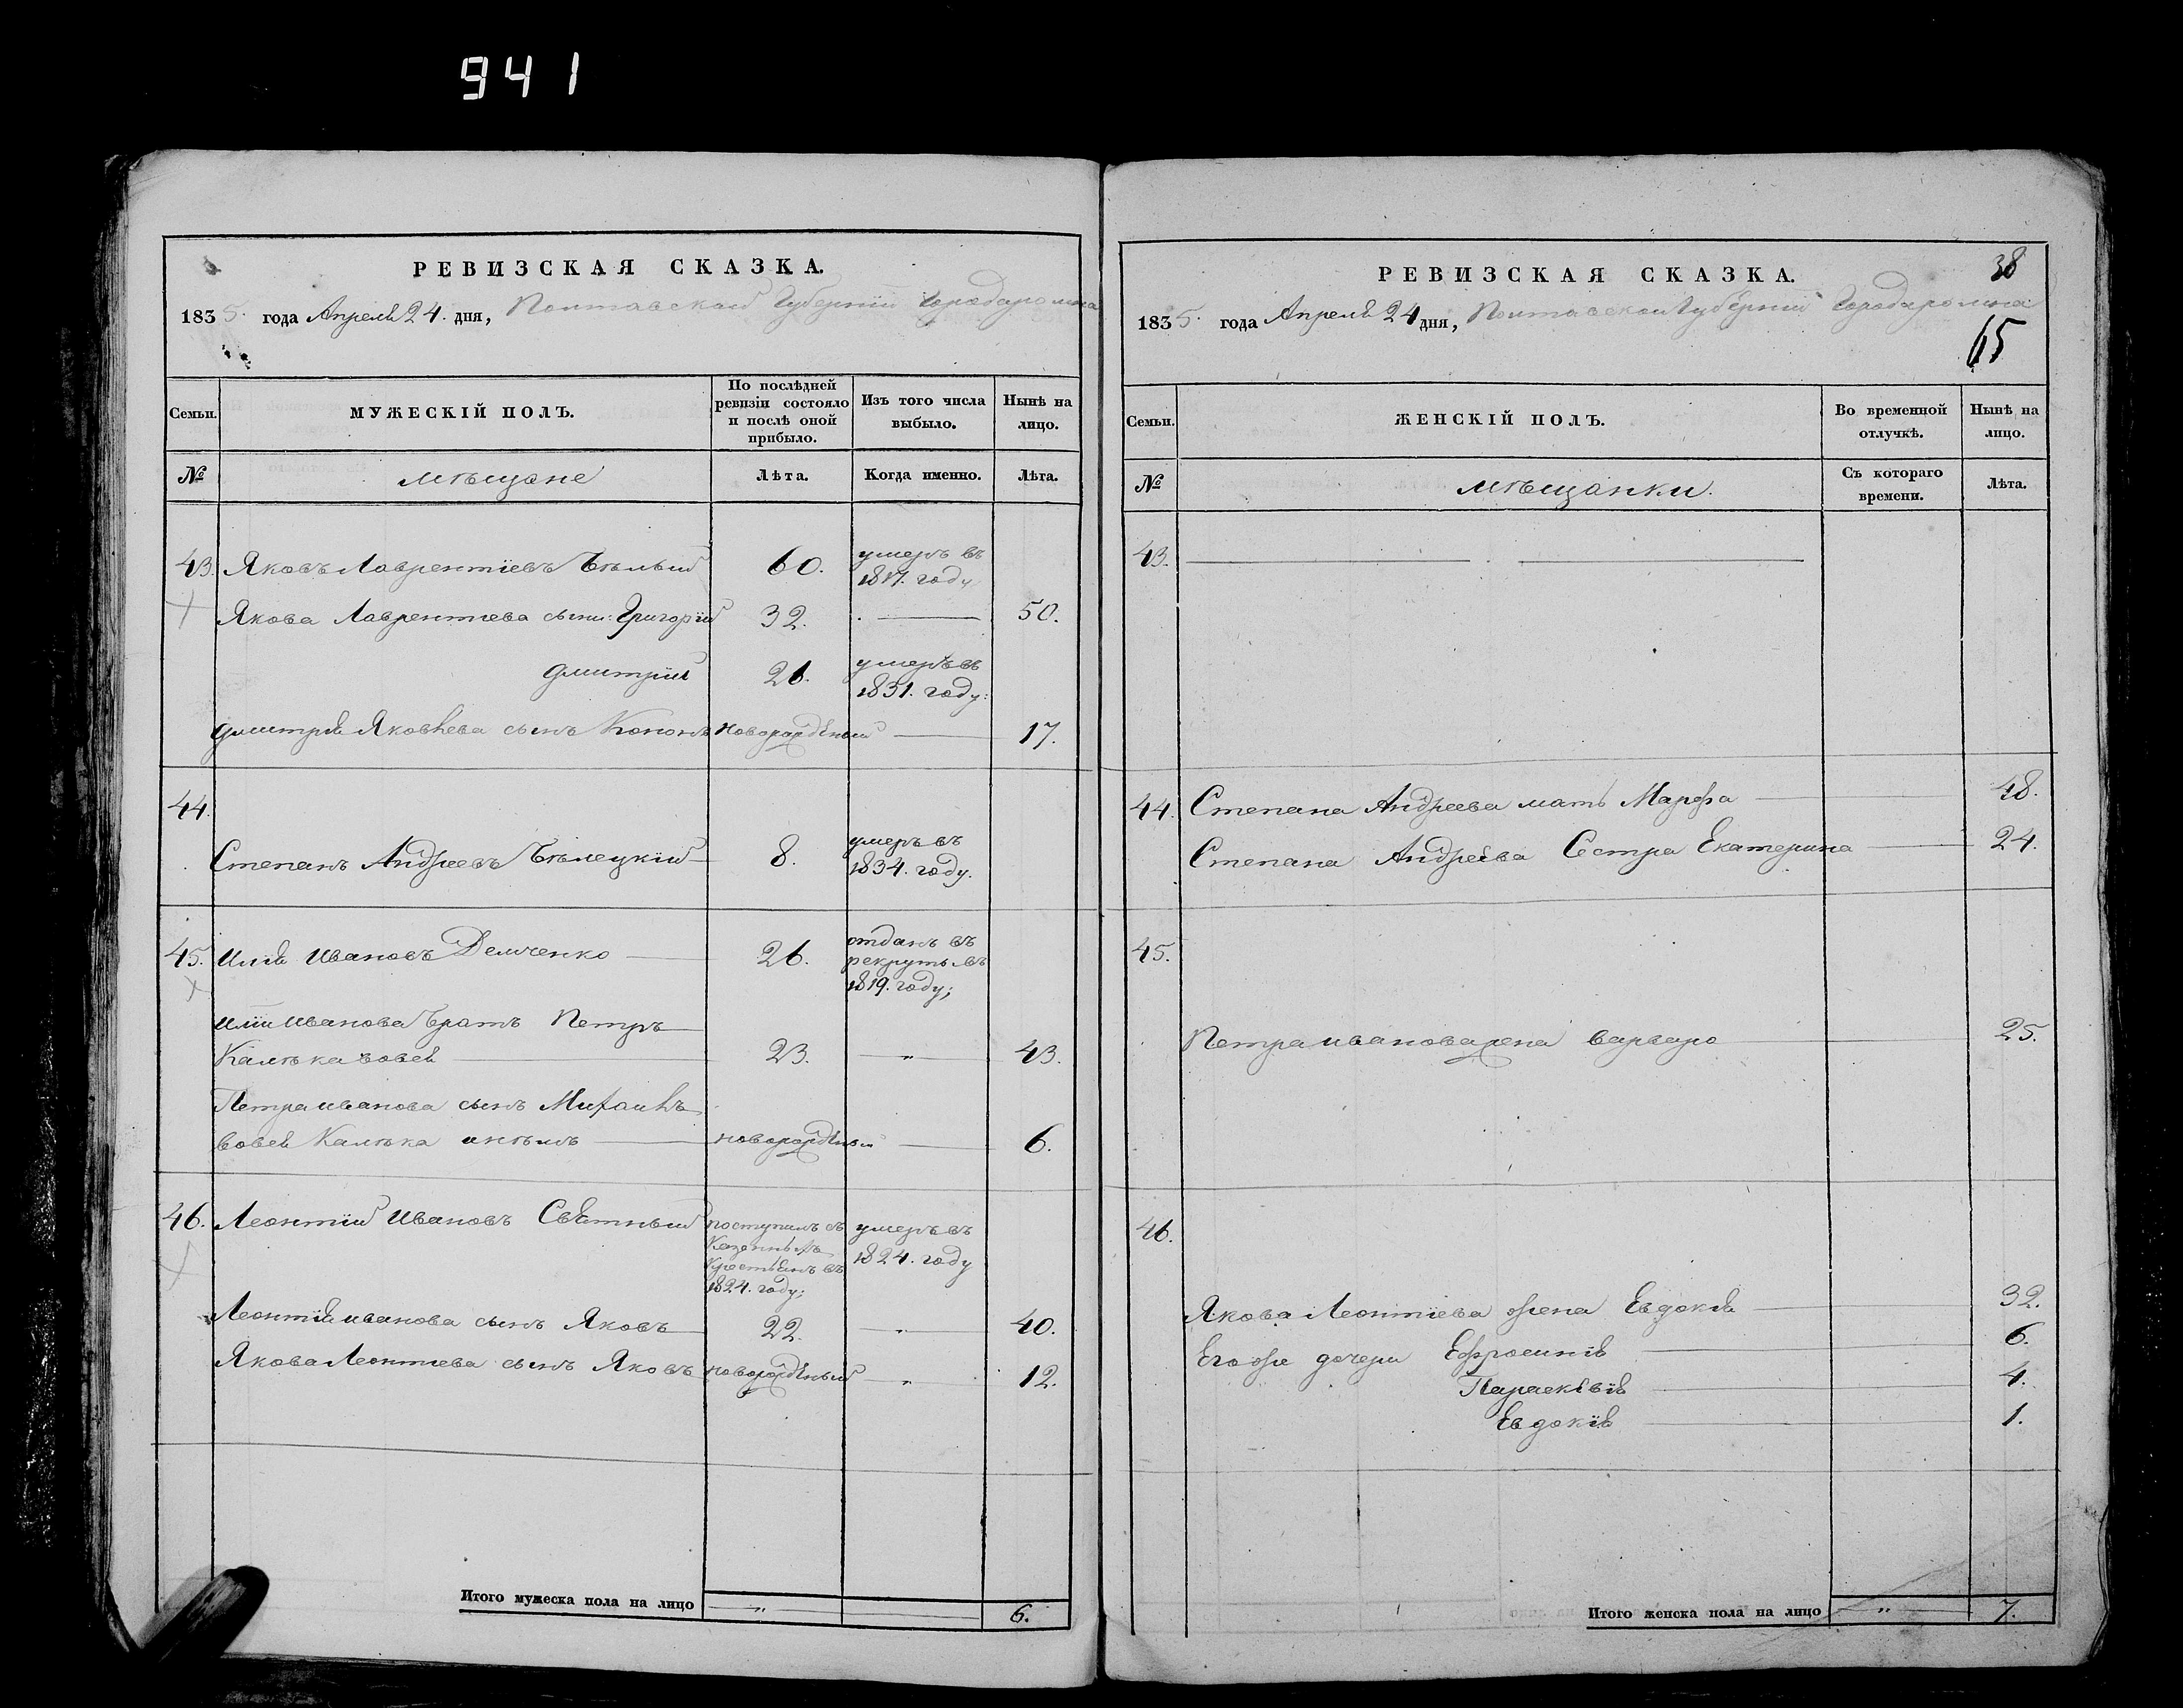 941
РЕВИЗСКАЯ СКАЗКА.
1835. года Апреля 24. дня, Полтавской Губернии Города Ромна
Семьи.
МУЖЕСКІЙ ПОЛЪ.
По послѣдней ревизіи состояло и послѣ оной прибыло.
Изъ того числа выбыло.
Нынѣ на лицо.
№
мѣщане
Лѣта.
Когда именно.
Лѣта.
43. Яковъ Лаврентіевъ Бѣлый 60. умеръ въ 1817. году
Якова Лаврентіева сыни: Григорій 32. 50.
Дмитрій 26. умеръ въ 1831. году:
Дмитрія Яковлева сынъ Кононъ новорожденый 17.
44.
Степанъ Андреевъ Бѣлецкій 8. умеръ въ 1834. году.
45. Илія Ивановъ Демченко 26. отданъ въ рекруты въ 1819. году;
Иліи Иванова братъ Петръ
Калѣка 23. „ 43.
Петра Иванова сынъ Михаилъ
Калѣка новорожденый 6.
46. Леонтій Ивановъ поступилъ съ Казенныхъ Крестьянъ въ 1824. году; умеръ въ 1824. году
Леонтія Иванова сынъ Яковъ 22. „ 40.
Якова Леонтіева сынъ Яковъ новорожденый „ 12.
Итого мужеска пола на лицо „ 6.
РЕВИЗСКАЯ СКАЗКА. 38
1835. года Апреля 24 дня, Полтавской Губерніи Города Ромна
65
Семьи.
ЖЕНСКІЙ ПОЛЪ.
Во временной отлучкѣ.
Нынѣ на лицо.
№
мѣщанки.
Съ котораго времени.
Лѣта.
43.
44. Степана Андреева мать Марфа 48.
Степана Андреева Сестра Екатерина 24.
45.
Петра Иванова жена Варвара 25.
46.
Якова Леонтіева жена Евдокія 32.
Его же дочери Ефросинія 6.
Параскевія 4.
Евдокія 1.
Итого женска пола на лицо „ 7.